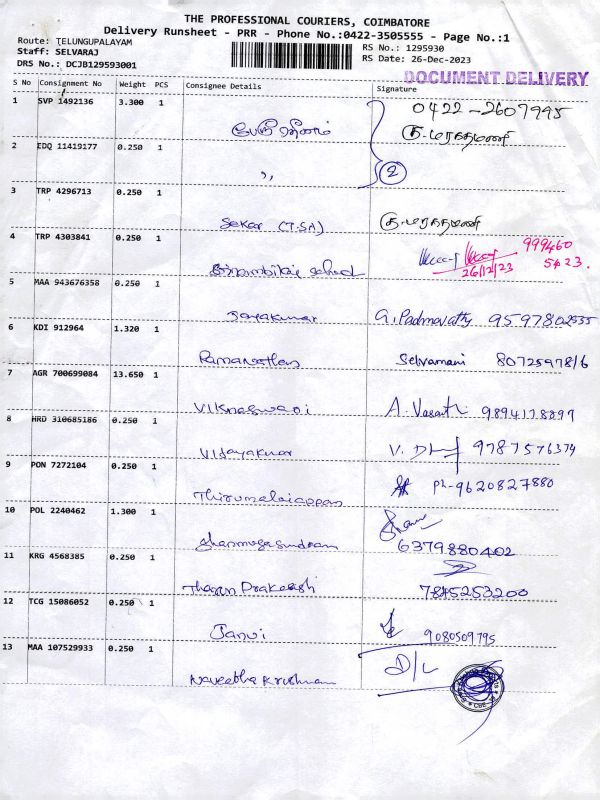 THE PROFESSIONAL COURIERS, COIMBATORE
Delivery Runsheet - PRR - Phone No.:0422-3505555 - Page No.:1
Route: TELUNGUPALAYAM
Staff: SELVARAJ
DRS No.: DCJB129593001
RS No.: 1295930
RS Date: 26-Dec-2023
DOCUMENT DELIVERY
S No Consignment No Weight PCS Consignee Details Signature
1 SVP 1492136 3.300 1 0422-2607995
கு.மரகதமணி
2 EDQ 11419177 0.250 1
,, 2
3 TRP 4296713 0.250 1
Sekar (T.SA) கு.மரகதமணி
4 TRP 4303841 0.250 1 999460
26/12/23 5423.
school
5 MAA 943676358 0.250 1
Jayakumar G.Padmavathy 9597802535
6 KDI 912964 1.320 1
Ramanathan Selvamani 8072597816
7 AGR 700699084 13.650 1
Viknaswari A. Vasanth 9894178897
8 HRD 310685186 0.250 1
Vidayakumar V. 9787576374
9 PON 7272104 0.250 1
Thirumalaiappan Ph-9620827880
10 POL 2240462 1.300 1
Shanmugasundram 6379880402
11 KRG 4568385 0.250 1
Tharun Prakeash 7845253200
12 TCG 15086052 0.250 1
Janvi 9080509795
13 MAA 107529933 0.250 1 D/L
Naveetha Krishnan